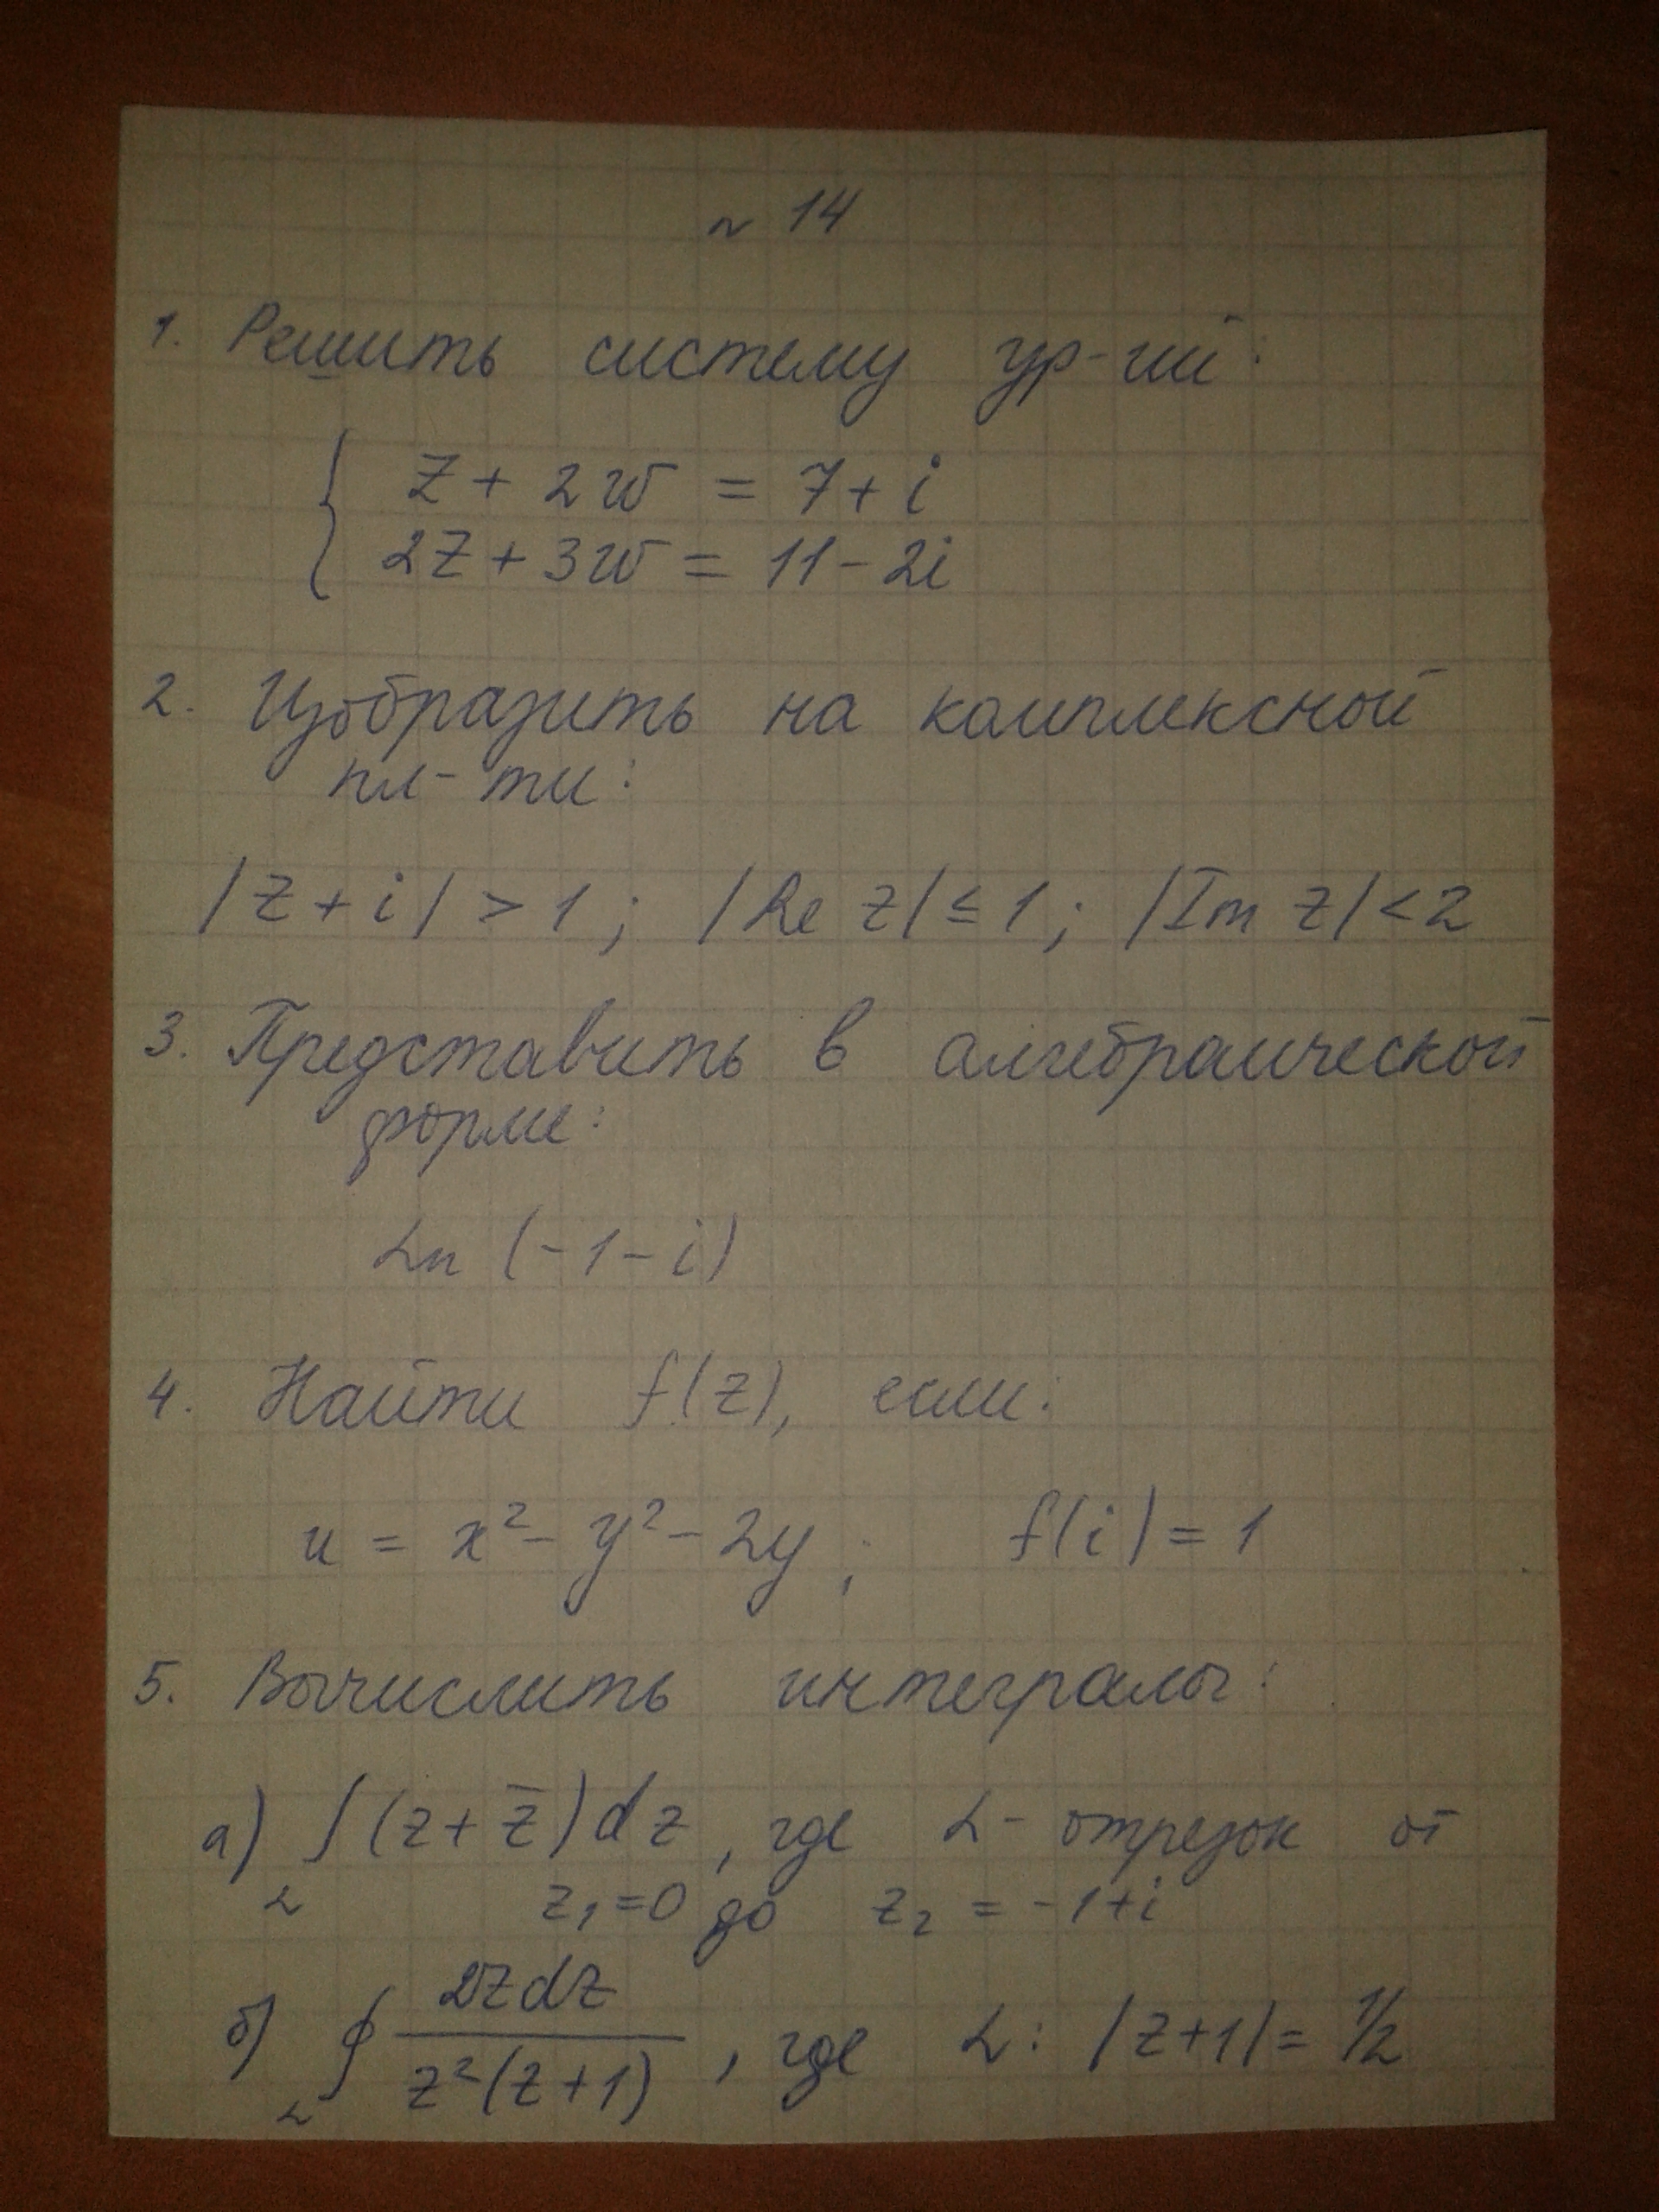 ~ 14
1. Решить систему ур-ий:
z + 2w = 7 + i
2z + 3w = 11 - 2i
2. Изобразить на комплексной
пл-ти:
|z + i| > 1; |Re z| ≤ 1; |Im z| < 2
3. Представить в алгебраической
форме:
Ln (-1 - i)
4. Найти f(z), если:
u = x² - y² - 2y; f(i) = 1
5. Вычислить интегралы:
а) ∫ (z + z̅) dz, где L - отрезок от
L z₁ = 0 до z₂ = -1 + i
2z dz
б) ∮ , где L: |z + 1| = 1/2
L z² (z + 1)